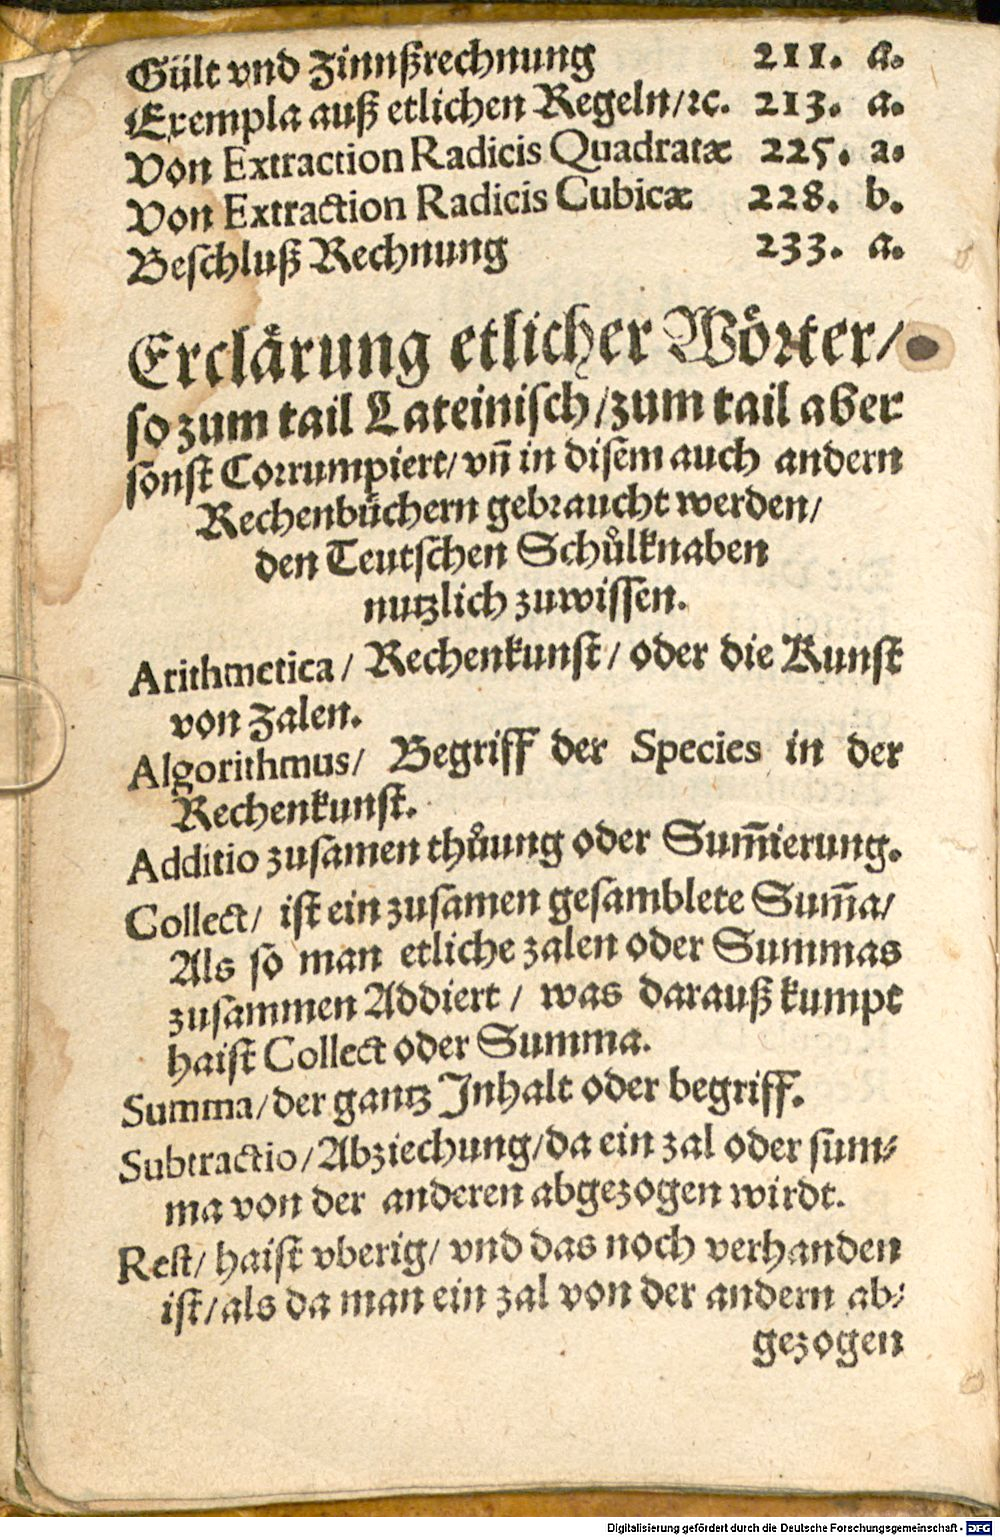 Gült vnd Zinnßrechnung 211. a.
Exempla auß etlichen Regeln/ꝛc. 213. a.
Von Extraction Radicis Quadratæ 225. a.
Von Extraction Radicis Cubicæ 228. b.
Beschluß Rechnung 233. a.
Erclärung etlicher Wörter/
so zum tail Lateinisch/zum tail aber
sonst Corrumpiert/ vñ in disem auch andern
Rechenbüchern gebraucht werden/
den Teutschen Schůlknaben
nutzlich zuwissen.
Arithmetica/ Rechenkunst/ oder die Kunst
von Zalen.
Algorithmus/ Begriff der Species in der
Rechenkunst.
Additio zusamen thůung oder Sum̃ierung.
Collect/ ist ein zusamen gesamblete Sum̃a/
Als so man etliche zalen oder Summas
zusammen Addiert/ was darauß kumpt
haist Collect oder Summa.
Summa/der gantz Inhalt oder begriff.
Subtractio/Abziechung/da ein zal oder sum⸗
ma von der anderen abgezogen wirdt.
Rest/ haist vberig/ vnd das noch verhanden
ist/als da man ein zal von der andern ab⸗
gezogen
Digitalisierung gefördert durch die Deutsche Forschungsgemeinschaft - DFG